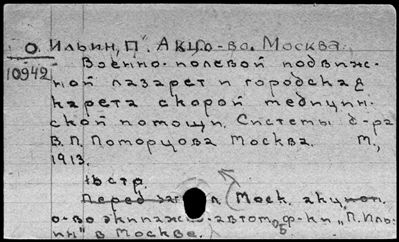 О. Ильин, П. Акц. о-во. Москва.
10942
Военно-полевой подвиж-
ной лазарет и городская
карета скорой медицин-
ской помощи. Системы д-ра
В. П. Поморцова Москва. М.,
1913.
14 стр.
Перед заг. Моск. акцион.
о-во экипажно-автом об. ф-ки „П. Иль-
ин" в Москве.